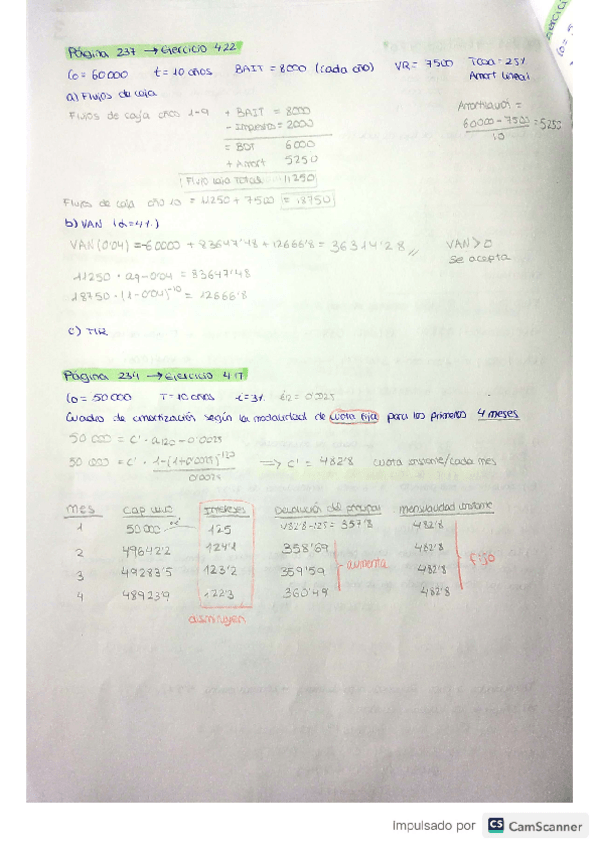 Página 237 → Ejercicio 4.22
Co = 60 000 t = 10 años BAIT = 8000 (cada año) VR = 7500 Tasa = 25%
Amort lineal
a) Flujos de caja
Flujos de caja años 1-9 + BAIT = 8000
- Impuestos = 2000
= BDT 6000
+ Amort 5250
Flujo caja total 11250
Amortización =
60000 - 7500 = 5250
10
Flujos de caja año 10 = 11250 + 7500 = 18750
b) VAN (i = 4%)
VAN (0'04) = -60000 + 83647'48 + 12666'8 = 36314'28 VAN > 0
se acepta
11250 · a9¬0'04 = 83647'48
18750 · (1-0'04)^-10 = 12666'8
c) TIR
Página 234 → Ejercicio 4.17
Co = 50 000 T = 10 años i = 3% i12 = 0'0025
Cuadro de amortización según la modalidad de cuota fija para los primeros 4 meses
50 000 = C' · a120¬0'0025
50 000 = C' · 1-(1+0'0025)^-120 ⟹ C' = 482'8 cuota constante/cada mes
0'0025
mes cap vivo Intereses Devolución del principal mensualidad constante
1 50000 125 482'8-125 = 357'8 482'8
2 49642'2 124'1 358'69 482'8
3 49283'5 123'2 359'59 482'8
4 48923'9 122'3 360'49 482'8
aumenta
Fijo
disminuyen
Impulsado por CS CamScanner